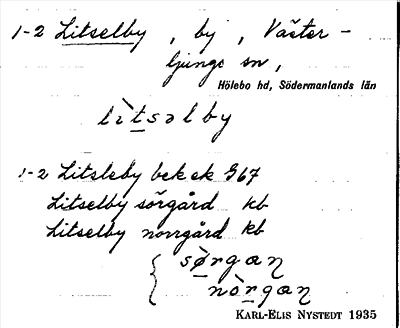 1-2 Litselby, by, Väster-
ljungs sn,
Hölebo hd, Södermanlands län
lìtsəlby
1-2 Litsleby bek ek 967
Litselby sörgård kb
Litselby norrgård kb
{ sø̀rgaɳ
nòrgaɳ
KARL-ELIS NYSTEDT 1935